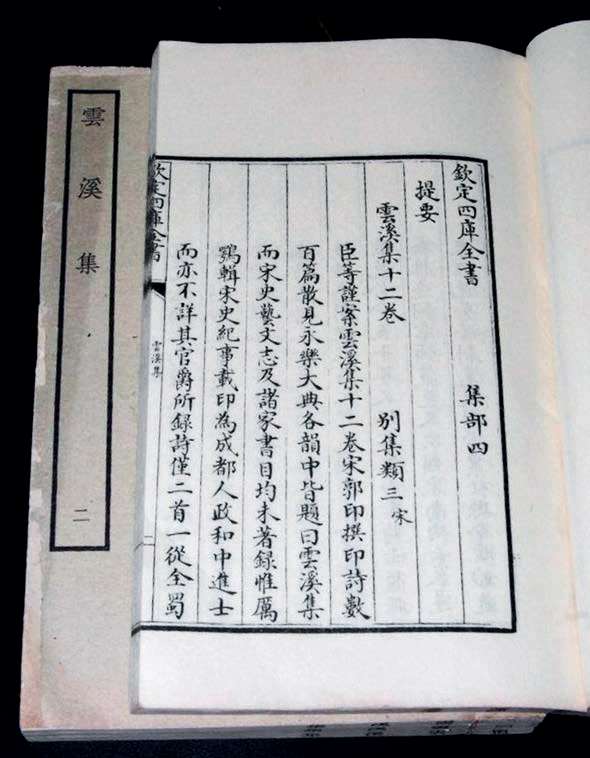 欽定四庫全書　集部四
提要
雲溪集十二卷　別集類三宋
臣等謹案雲溪集十二卷宋郭印撰印詩數
百篇散見永樂大典各韻中皆題曰雲溪集
而宋史藝文志及諸家書目均未著錄惟厲
鶚輯宋史紀事載印為成都人政和中進士
而亦不詳其官爵所錄詩僅二首一從全蜀
欽定四庫全書
雲溪集
雲溪集
二